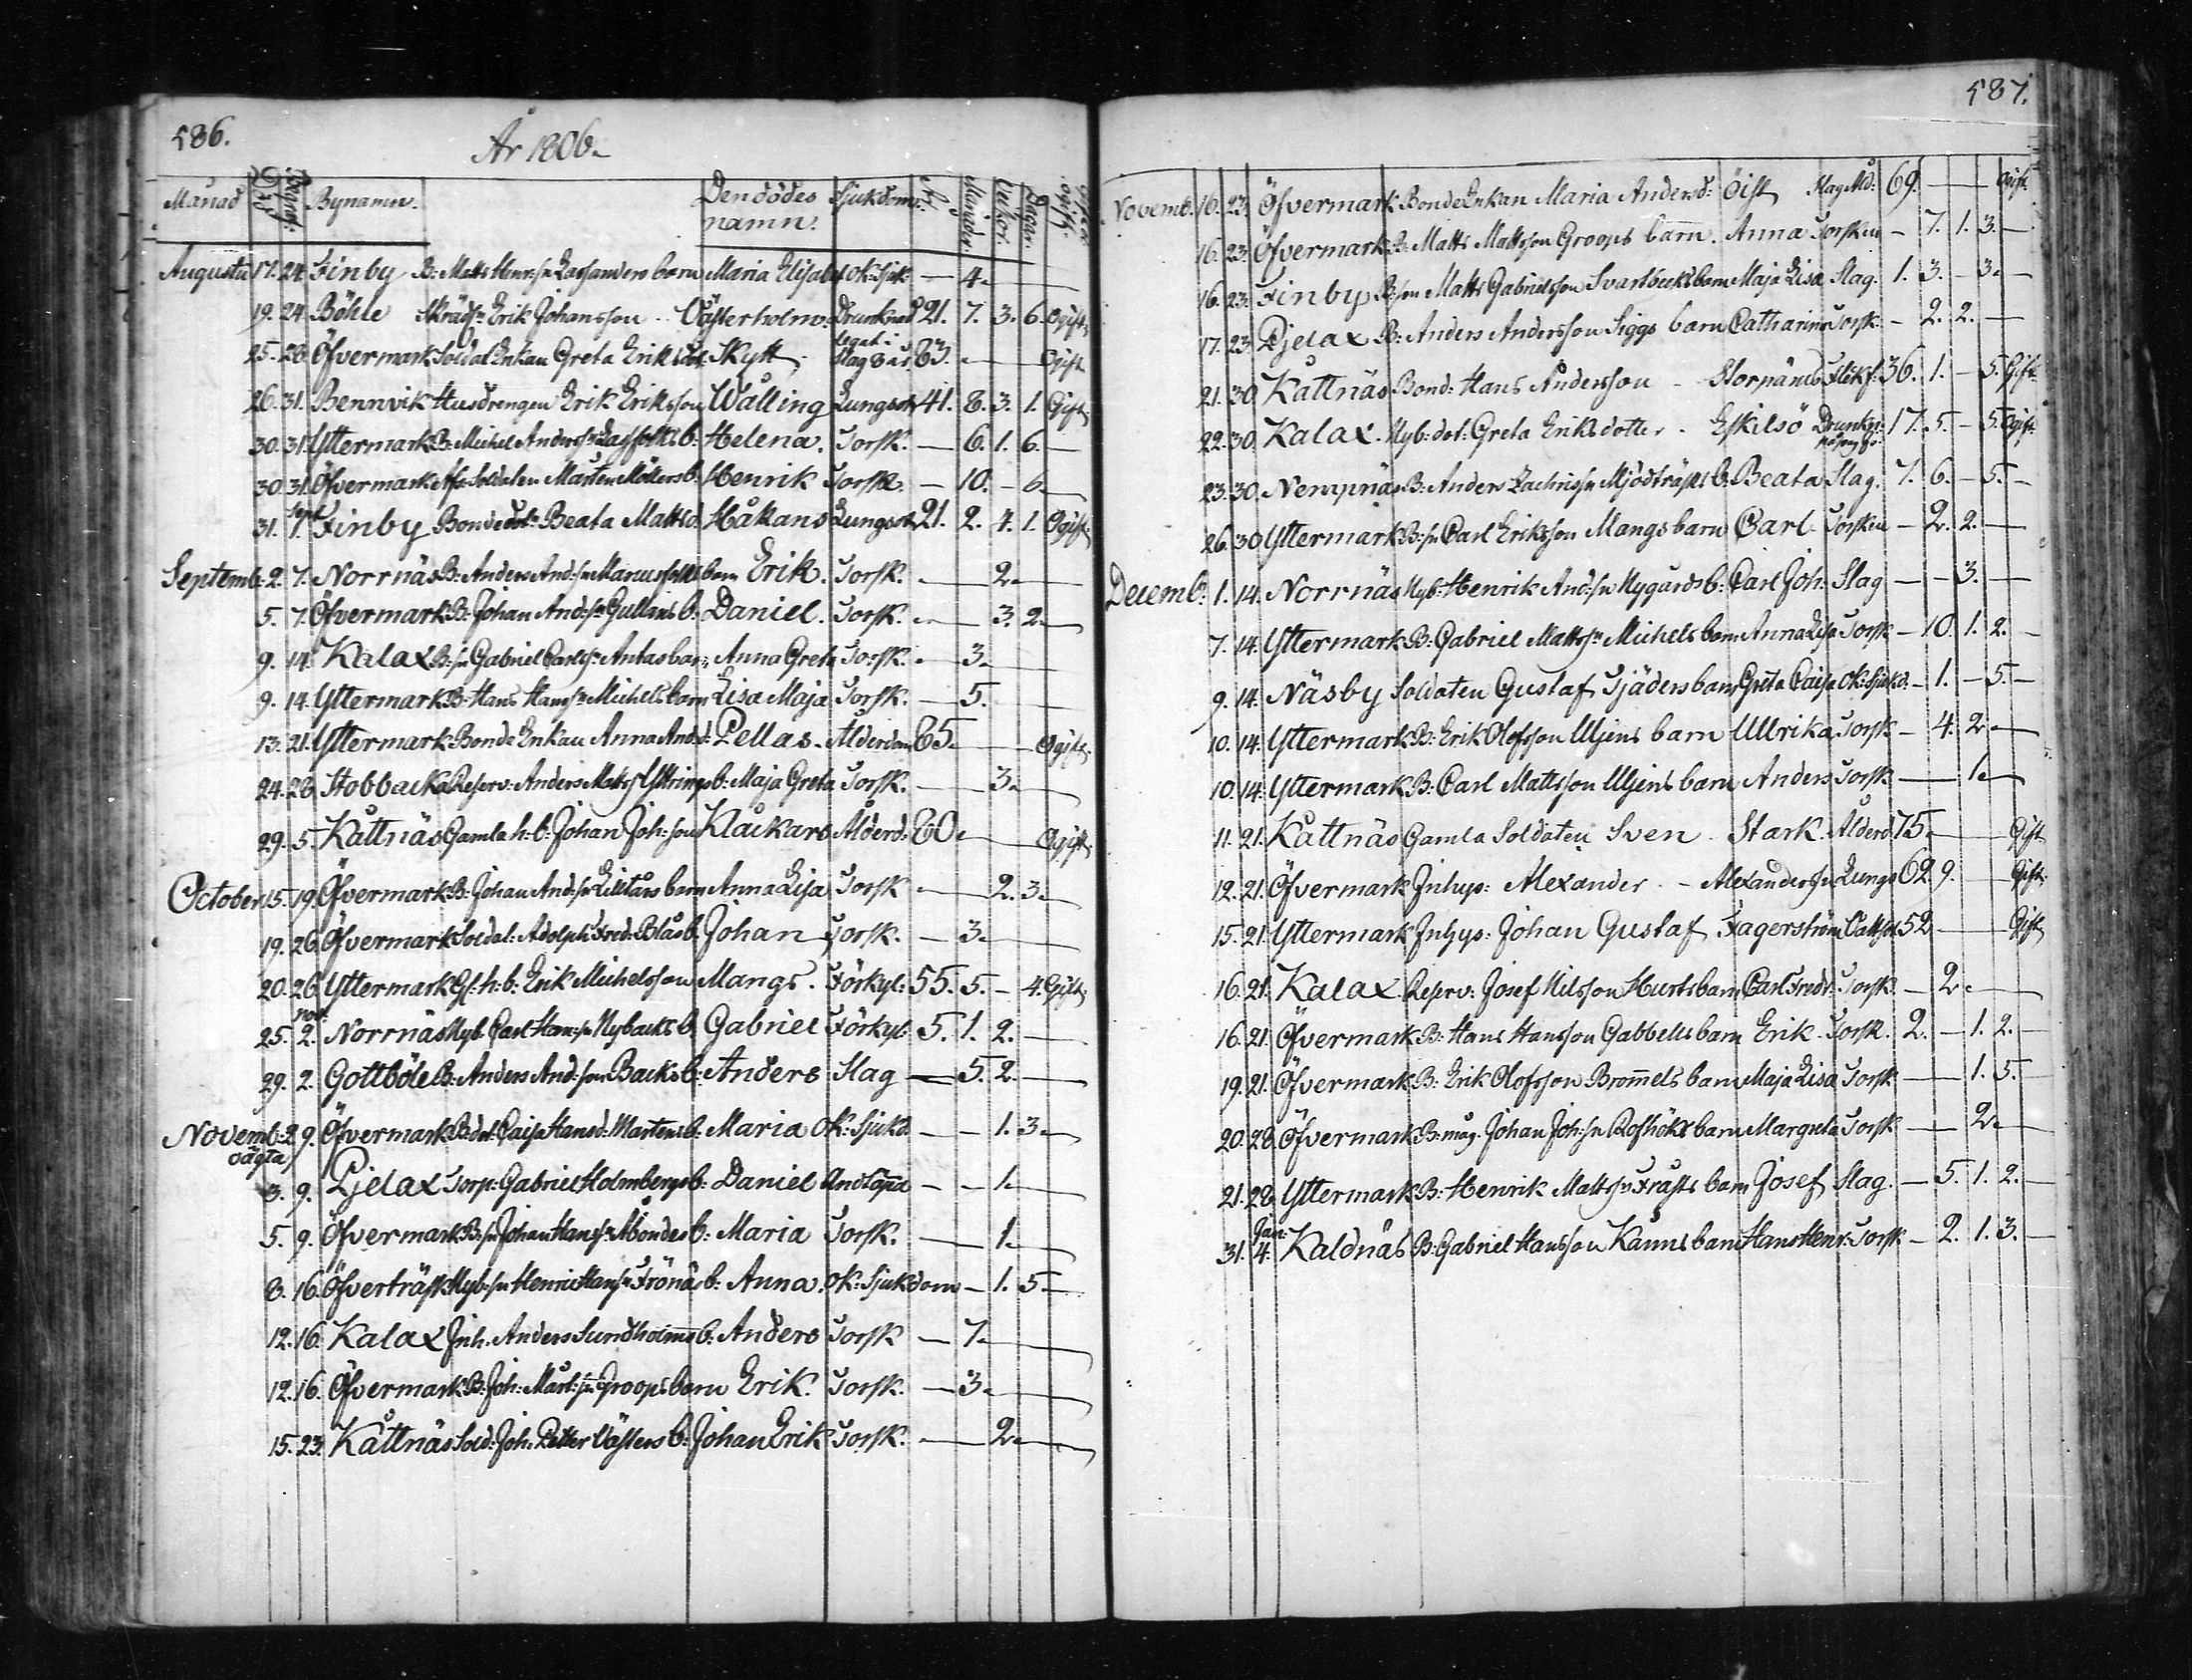 586.
År 1806.
Månad Död Begrafn. Bynamn. Den dödes namn. Sjukdom År Månader. Veckor. Dagar. Gift. ogift.
Augusti 17. 24. Finby B: Matts Henr:sn Lassanders barn Maria Elisabet ok: Sjuk — 4. —
19. 24. Böhle Skrädd:n Erik Johansson Västerholm. Drunknad 21. 7. 3. 6. Ogift
25. 28. Öfvermark Soldat Enkan Greta Eriksdot: Skytt. legat i Slag 8 år 83. — Ogift
26. 31. Bennvik Husdrengen Erik Eriksson Wålling Lungsot 41. 8. 3. 1. Gift
30. 31. Yttermark B: Michel Anders:sn Lassfolks b: Helena. Torsk. — 6. 1. 6. —
30. 31. Öfvermark Afsk Soldaten Mårten Möllers b: Henrik Torsk. — 10. - 6. —
31. Sept 7. Finby Bondedot: Beata Mattsd: Håkans Lungsot 21. 2. 4. 1. Ogift
Septemb: 2. 7. Norrnäs B: Anders And:sn Marcusfolks barn Erik. Torsk. — 2. —
5. 7. Öfvermark B: Johan And:sn Gullans b: Daniel. Torsk. — 3. 2. —
9. 14. Kalax B:sn Gabriel Carls:n Antas barn Anna Greta Torsk. — 3. —
9. 14. Yttermark B: Hans Hans:n Michels barn Lisa Maja Torsk. — 5.
13. 21. Yttermark Bonde Enkan Anna And:d: Pellas. Ålderdom 85. — Ogift
24. 28. Stobbacka Reserv: Anders Matts:n Yttrings b: Maja Greta Torsk. — 3. —
29. 5. Kåttnäs Gamla h:b: Johan Joh:son Klåckars Ålderd: 80. — Ogift
October 15. 19. Öfvermark B: Johan And:sn Lilltårs barn Anna Lisa Torsk — 2. 3. —
19. 26. Öfvermark Soldat: Adolph Fred: Blås b. Johan Torsk. — 3. —
20. 26. Yttermark Gl: h:b: Erik Michelsson Mangs. Förkyl: 55. 5. - 4. Gift
25. nov 2. Norrnäs Nyb: Carl Hans:sn Nybacks b. Gabriel Förkyl: 5. 1. 2. —
29. 2. Gottböle B: Anders And:son Backs b: Anders Slag — 5. 2. —
Novemb: 2 9. Öfvermark B:dot: Caisa Hansd: Martens b: Maria ok: Sjukd — 1. 3. —
oägta
3. 9. Pjelax Torp: Gabriel Holmbergs b: Daniel Andtäppa — 1. —
5. 9. Öfvermark B:sn Johan Hans:n Åbondes b: Maria Torsk. — 1. —
8. 16. Öfverträsk Nyb:sn Henric Hans:n Frönäs b: Anna. ok: Sjukdom — 1. 5. —
12. 16. Kalax Inh. Anders Sundholms b: Anders Torsk — 7. —
12. 16. Öfvermark B: Joh: Mårt:sn Groops barn Erik. Torsk. — 3. —
15. 23. Kåttnäs Sold: Joh: Petter Västers b: Johan Erik Torsk. — 2. —
587.
Novemb. 16. 23. Öfvermark Bonde Enkan Maria Andersd: Öist Slag Åld: 69. — Ogift
16. 23. Öfvermark B: Matts Mattsson Groops barn. Anna Torsken — 7. 1. 3. —
16. 23. Finby B:son Matts Gabrielsson Svartbecks barn Maja Lisa Slag. 1. 3. - 3. —
17. 23. Pjelax B: Anders Andersson Siggs barn Catharina Torsk. — 2. 2. —
21. 30. Kåttnäs Bond: Hans Andersson - Stornänds Fläkf: 36. 1. - 5. Gift.
22. 30. Kalax. Nyb: dot: Greta Eriksdotter. Eskilsö Drunkn: 17. 5. - 5. Ogift.
23. 30. Nempnäs B: Anders Zachris:sn Mjödträsks b. Beata Slag. 7. 6. - 5. —
26. 30. Yttermark B:sn Carl Eriksson Mangs barn Carl Torsken — 2. 2. —
Decemb: 1. 14. Norrnäs Nyb: Henrik And:sn Nygårds b: Carl Joh: Slag — - 3. —
7. 14. Yttermark B: Gabriel Matts:n Michels barn Anna Lisa Torsk — 10. 1. 2. —
9. 14. Näsby Soldaten Gustaf Sjäders barn Greta Caisa ok: Sjukd. — 1. - 5. —
10. 14. Yttermark B: Erik Olofsson Uljens barn Ullrika Torsk — 4. 2. —
10. 14. Yttermark B: Carl Mattsson Uljens barn Anders Torsk — 1. —
11. 21. Kåttnäs Gamla Soldaten Sven Stark. Ålderd. 75. — Gift
12. 21. Öfvermark Inhys: Alexander - Alexanders:n Lungs 62 9. — Gift.
15. 21. Yttermark Inhys: Johan Gustaf Fagerström Vattsot 52 — Gift
16. 21. Kalax. Reserv: Josef Nilsson Hurts barn Carl Fredr: Torsk — 2. —
16. 21. Öfvermark B: Hans Hansson Gabbells barn Erik Torsk. 2. - 1. 2. —
19. 21. Öfvermark B: Erik Olofsson Brommels barn Maja Lisa Torsk — 1. 5. —
20. 28. Öfvermark B: måg. Johan Joh:sn Rofhökx barn Margreta Torsk — 2. —
21. 28. Yttermark B: Henrik Matts:n Frasts barn Josef Slag. — 5. 1. 2. —
31. Jan: 4. Kaldnäs B: Gabriel Hansson Kanns barn Hans Henr: Torsk — 2. 1. 3. —